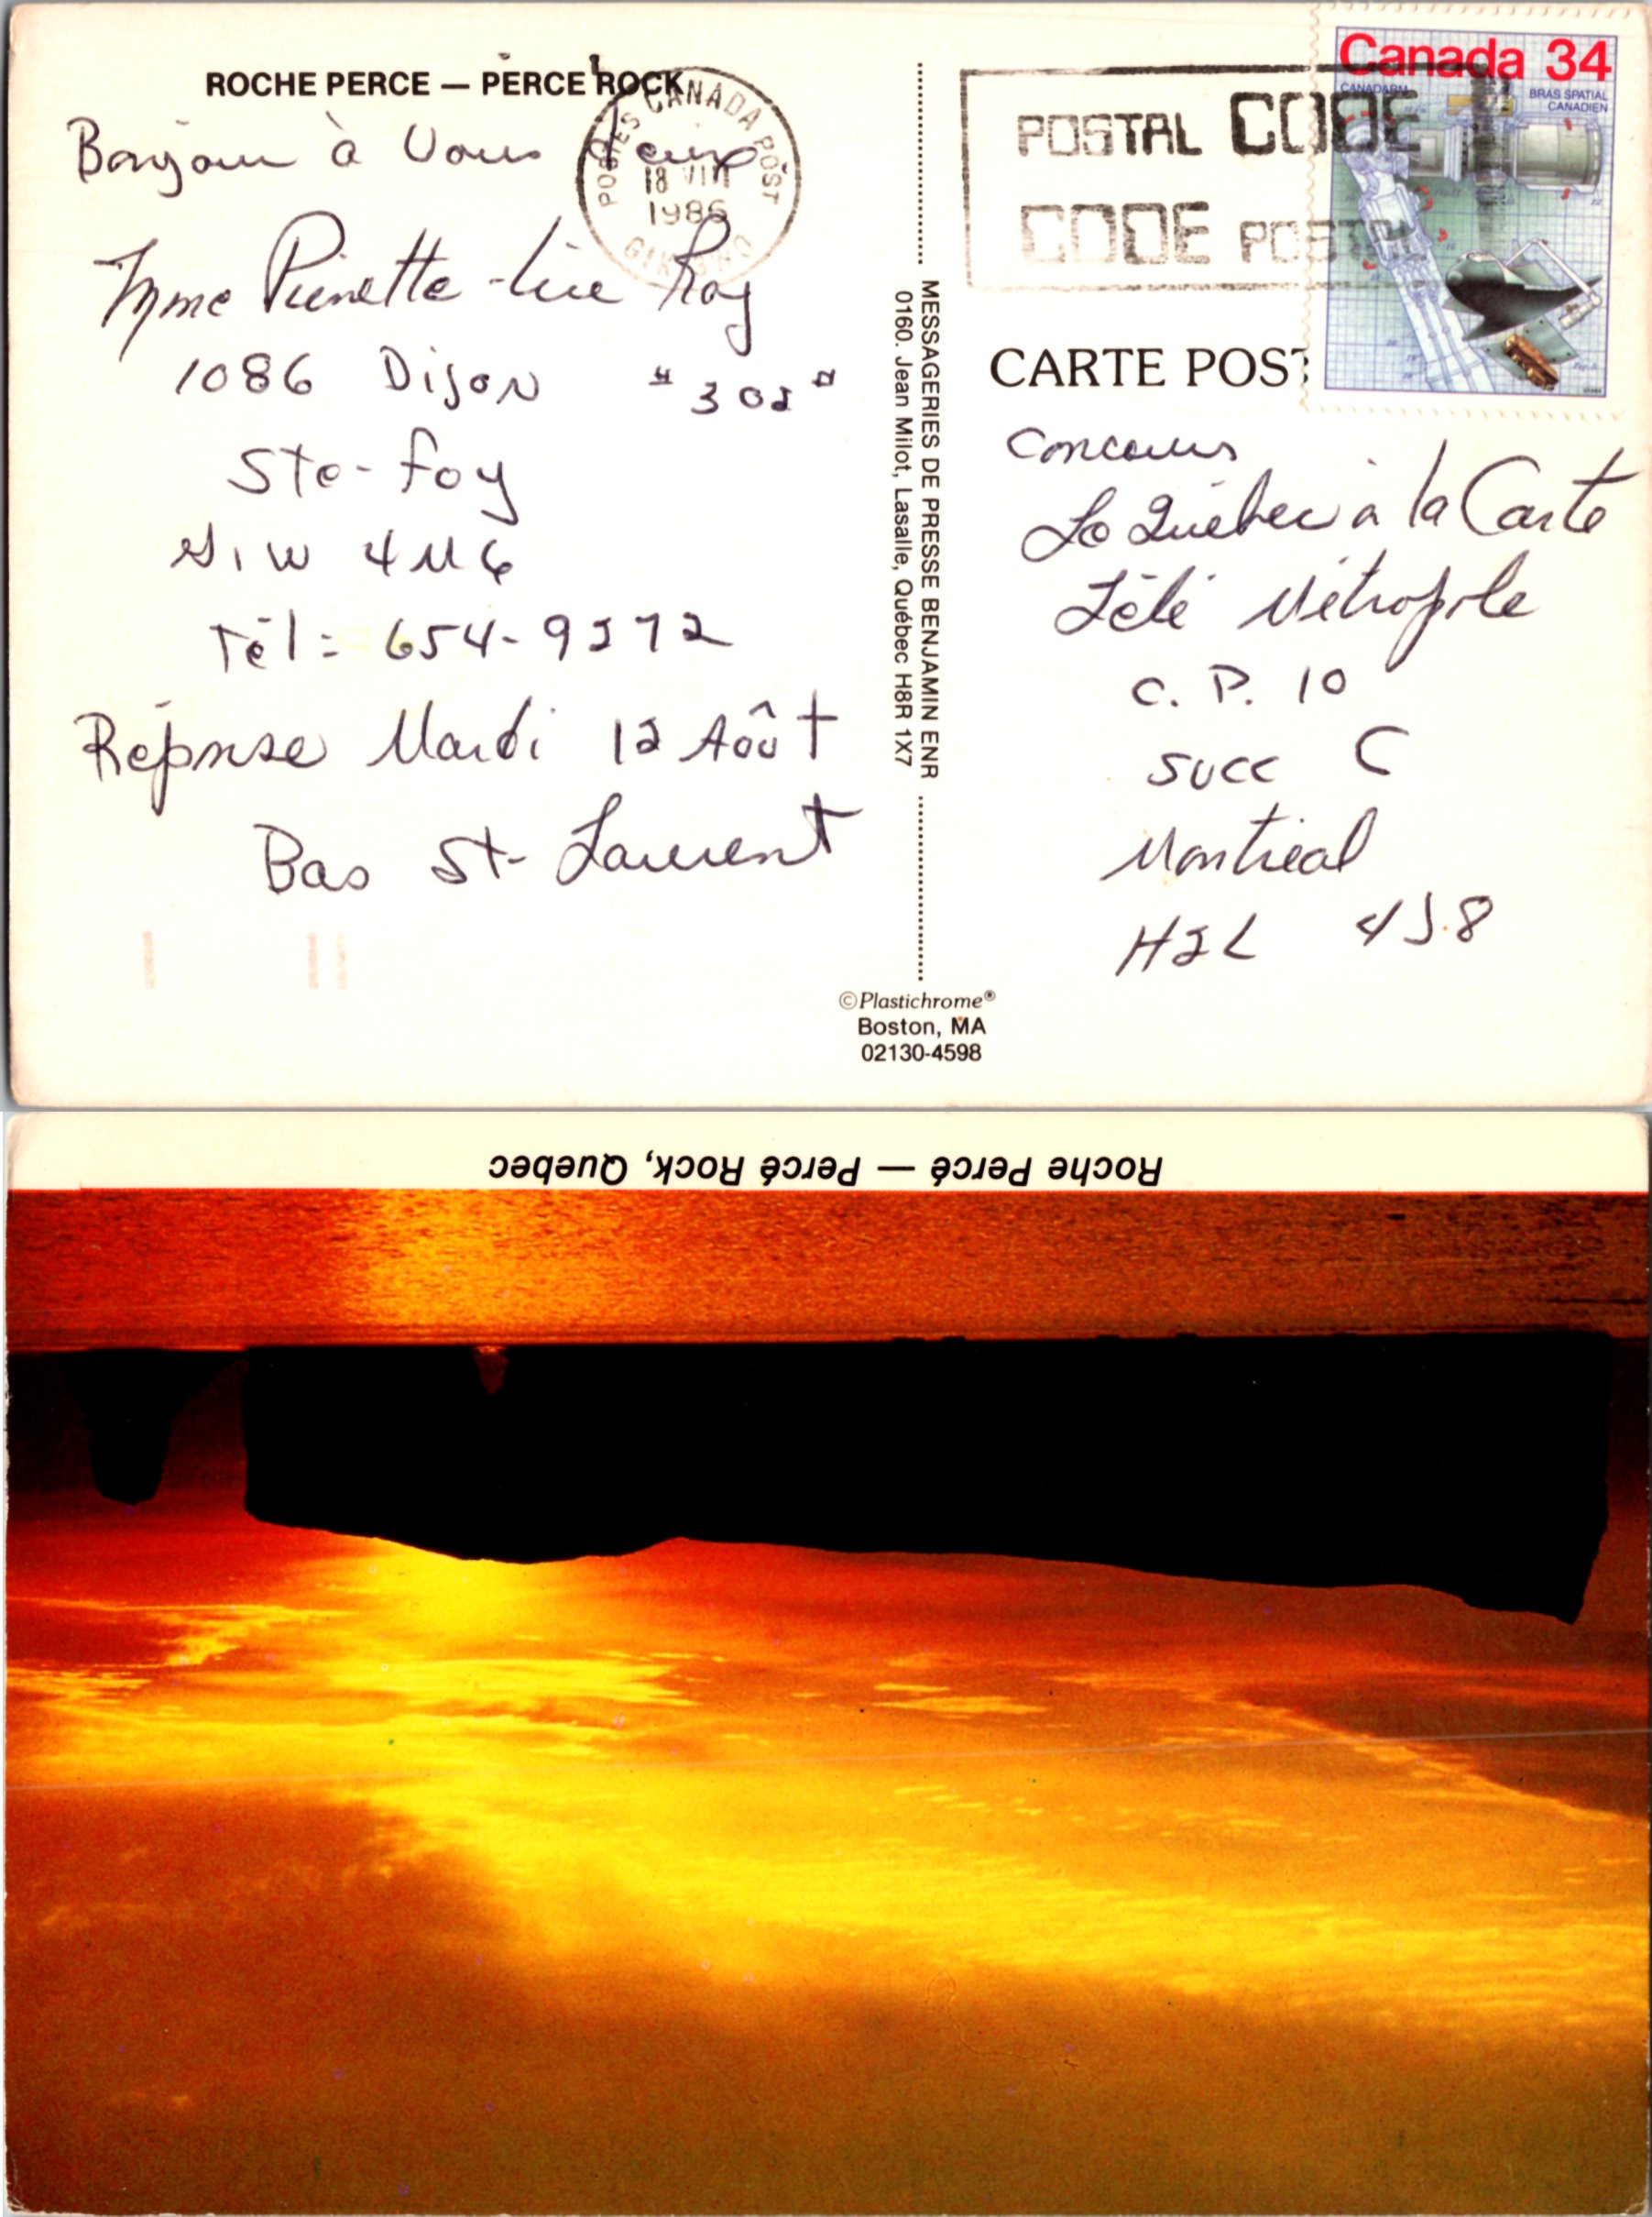 ROCHE PERCE — PERCE ROCK
Bonjour à Vous deux
Mme Pierrette-Lise Roy
1086 Dijon "302"
Ste-Foy
G1W 4M6
Tél: 654-9272
Réponse Mardi 12 Août
Bas St-Laurent
POSTES CANADA POST
18 VIII
1986
MESSAGERIES DE PRESSE BENJAMIN ENR
0160. Jean Milot, Lasalle, Québec H8R 1X7
©Plastichrome®
Boston, MA
02130-4598
POSTAL CODE
CODE POSTAL
Canada 34
CANADARM
BRAS SPATIAL
CANADIEN
CARTE POST
Concours
Le Québec à la Carte
Télé Métropole
C. P. 10
Succ C
Montréal
H2L 4J8
Roche Percé — Percé Rock, Quebec